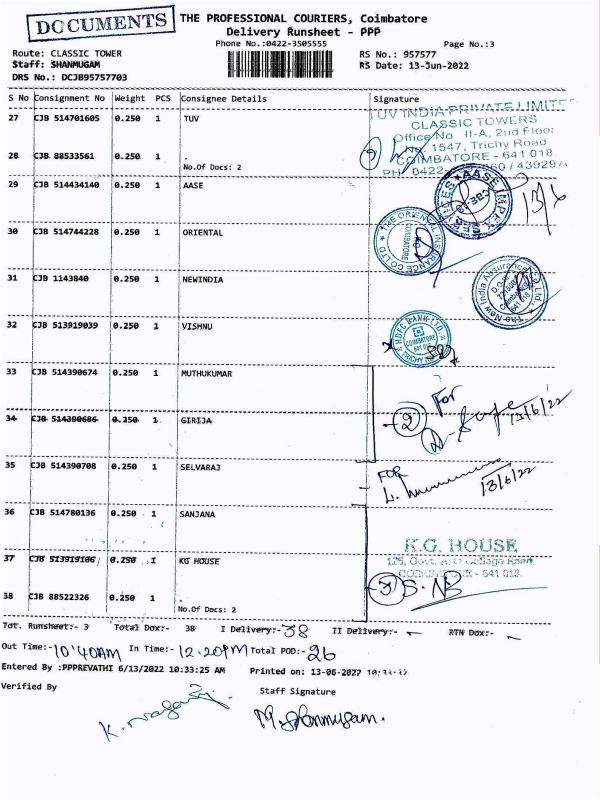 DOCUMENTS
THE PROFESSIONAL COURIERS, Coimbatore
Delivery Runsheet - PPP
Phone No.:0422-3505555 Page No.:3
Route: CLASSIC TOWER RS No.: 957577
Staff: SHANMUGAM RS Date: 13-Jun-2022
DRS No.: DCJB95757703
S No Consignment No Weight PCS Consignee Details Signature
27 CJB 514701605 0.250 1 TUV
TUV INDIA PRIVATE LIMITED
CLASSIC TOWERS
Office No II-A, 2nd Floor
No. 1547, Trichy Road
COIMBATORE - 641 018
28 CJB 88533561 0.250 1 .
No.Of Docs: 2
29 CJB 514434140 0.250 1 AASE
13/6
30 CJB 514744228 0.250 1 ORIENTAL
THE ORIENTAL INSURANCE CO LTD
COIMBATORE
31 CJB 1143840 0.250 1 NEWINDIA
The New India Assurance Co. Ltd.
32 CJB 513919039 0.250 1 VISHNU
HDFC BANK LTD.
COIMBATORE
TRICHY
33 CJB 514390674 0.250 1 MUTHUKUMAR
For
2
13/6/22
34 CJB 514390686 0.250 1 GIRIJA
35 CJB 514390708 0.250 1 SELVARAJ
FOR
13/6/22
36 CJB 514780136 0.250 1 SANJANA
K.G. HOUSE
COIMBATORE - 641 018
37 CJB 513919106 0.250 1 KG HOUSE
38 CJB 88522326 0.250 1 .
No.Of Docs: 2
Tot. Runsheet:- 3 Total Dox:- 38 I Delivery:- 38 II Delivery:- - RTN Dox:- -
Out Time:- 10'40AM In Time:- 12.20PM Total POD:- 26
Entered By :PPPREVATHI 6/13/2022 10:33:25 AM Printed on: 13-06-2022
Verified By Staff Signature
M. Shanmugam.